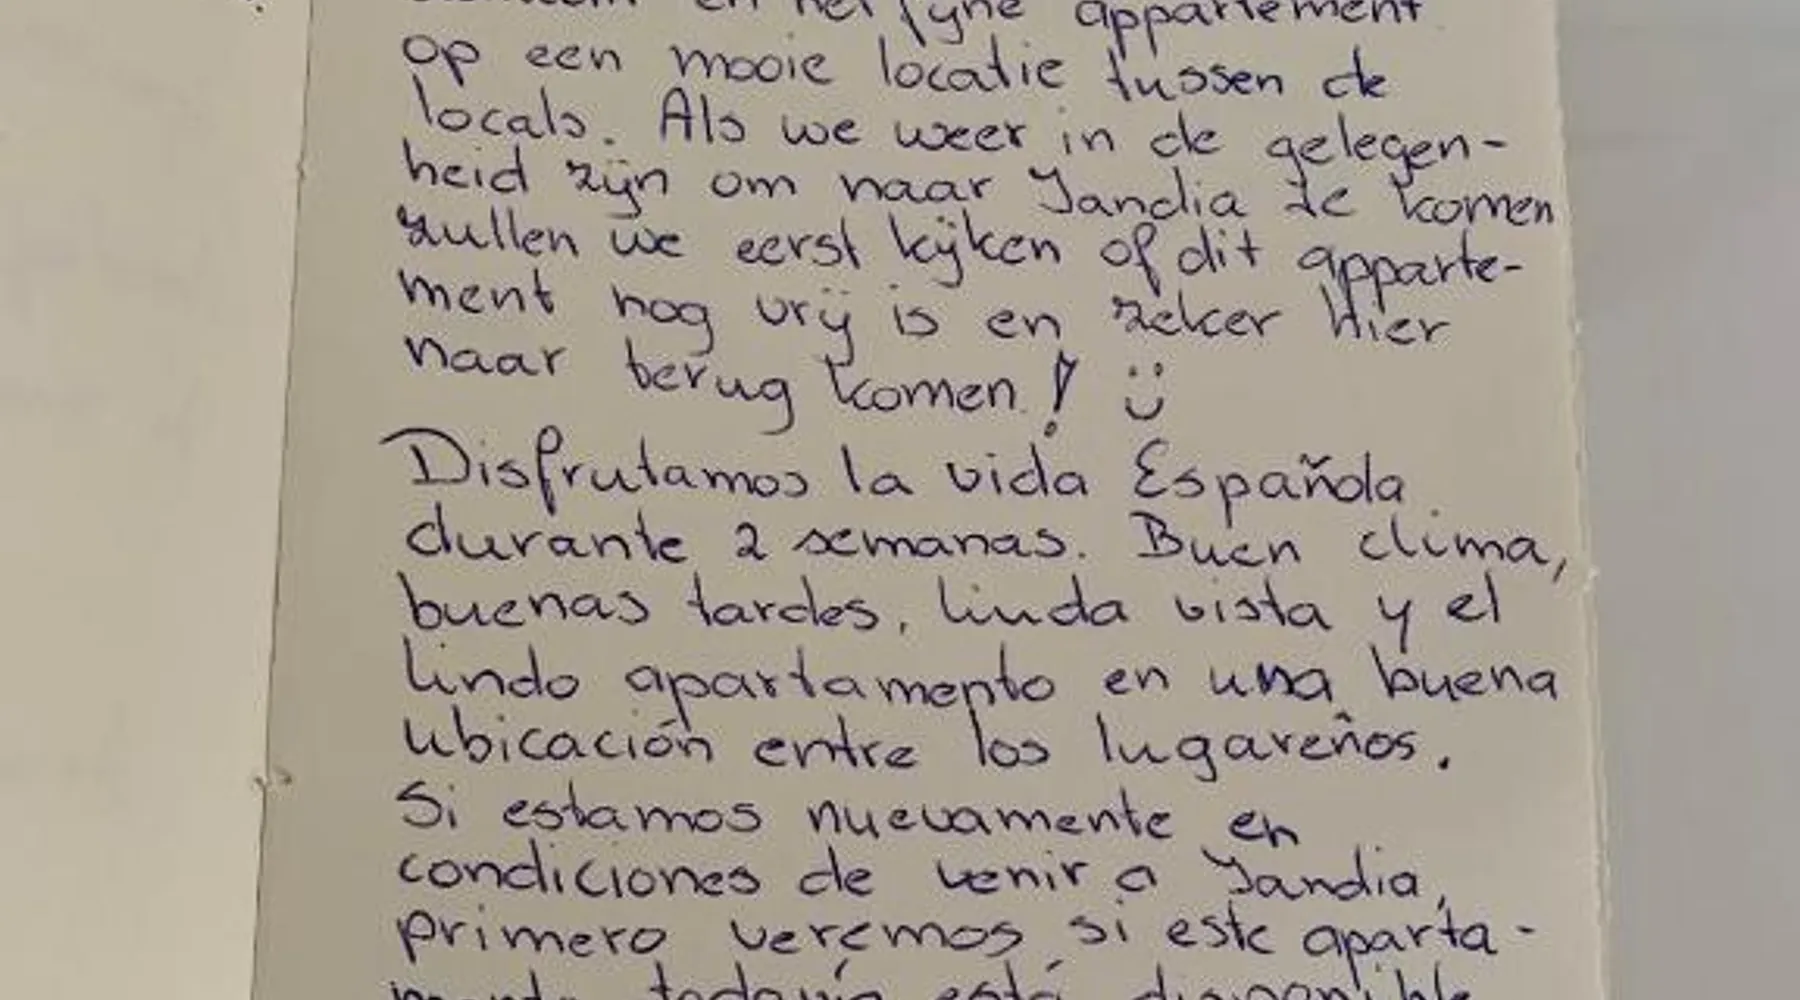 en het fijne appartement
op een mooie locatie tussen de
locals. Als we weer in de gelegen-
heid zijn om naar Jandia te komen
zullen we eerst kijken of dit apparte-
ment nog vrij is en zeker hier
naar terug komen! :)
Disfrutamos la vida Española
durante 2 semanas. Buen clima,
buenas tardes, linda vista y el
lindo apartamento en una buena
ubicación entre los lugareños.
Si estamos nuevamente en
condiciones de venir a Jandia,
primero veremos si este aparta-
mento todavía está disponible